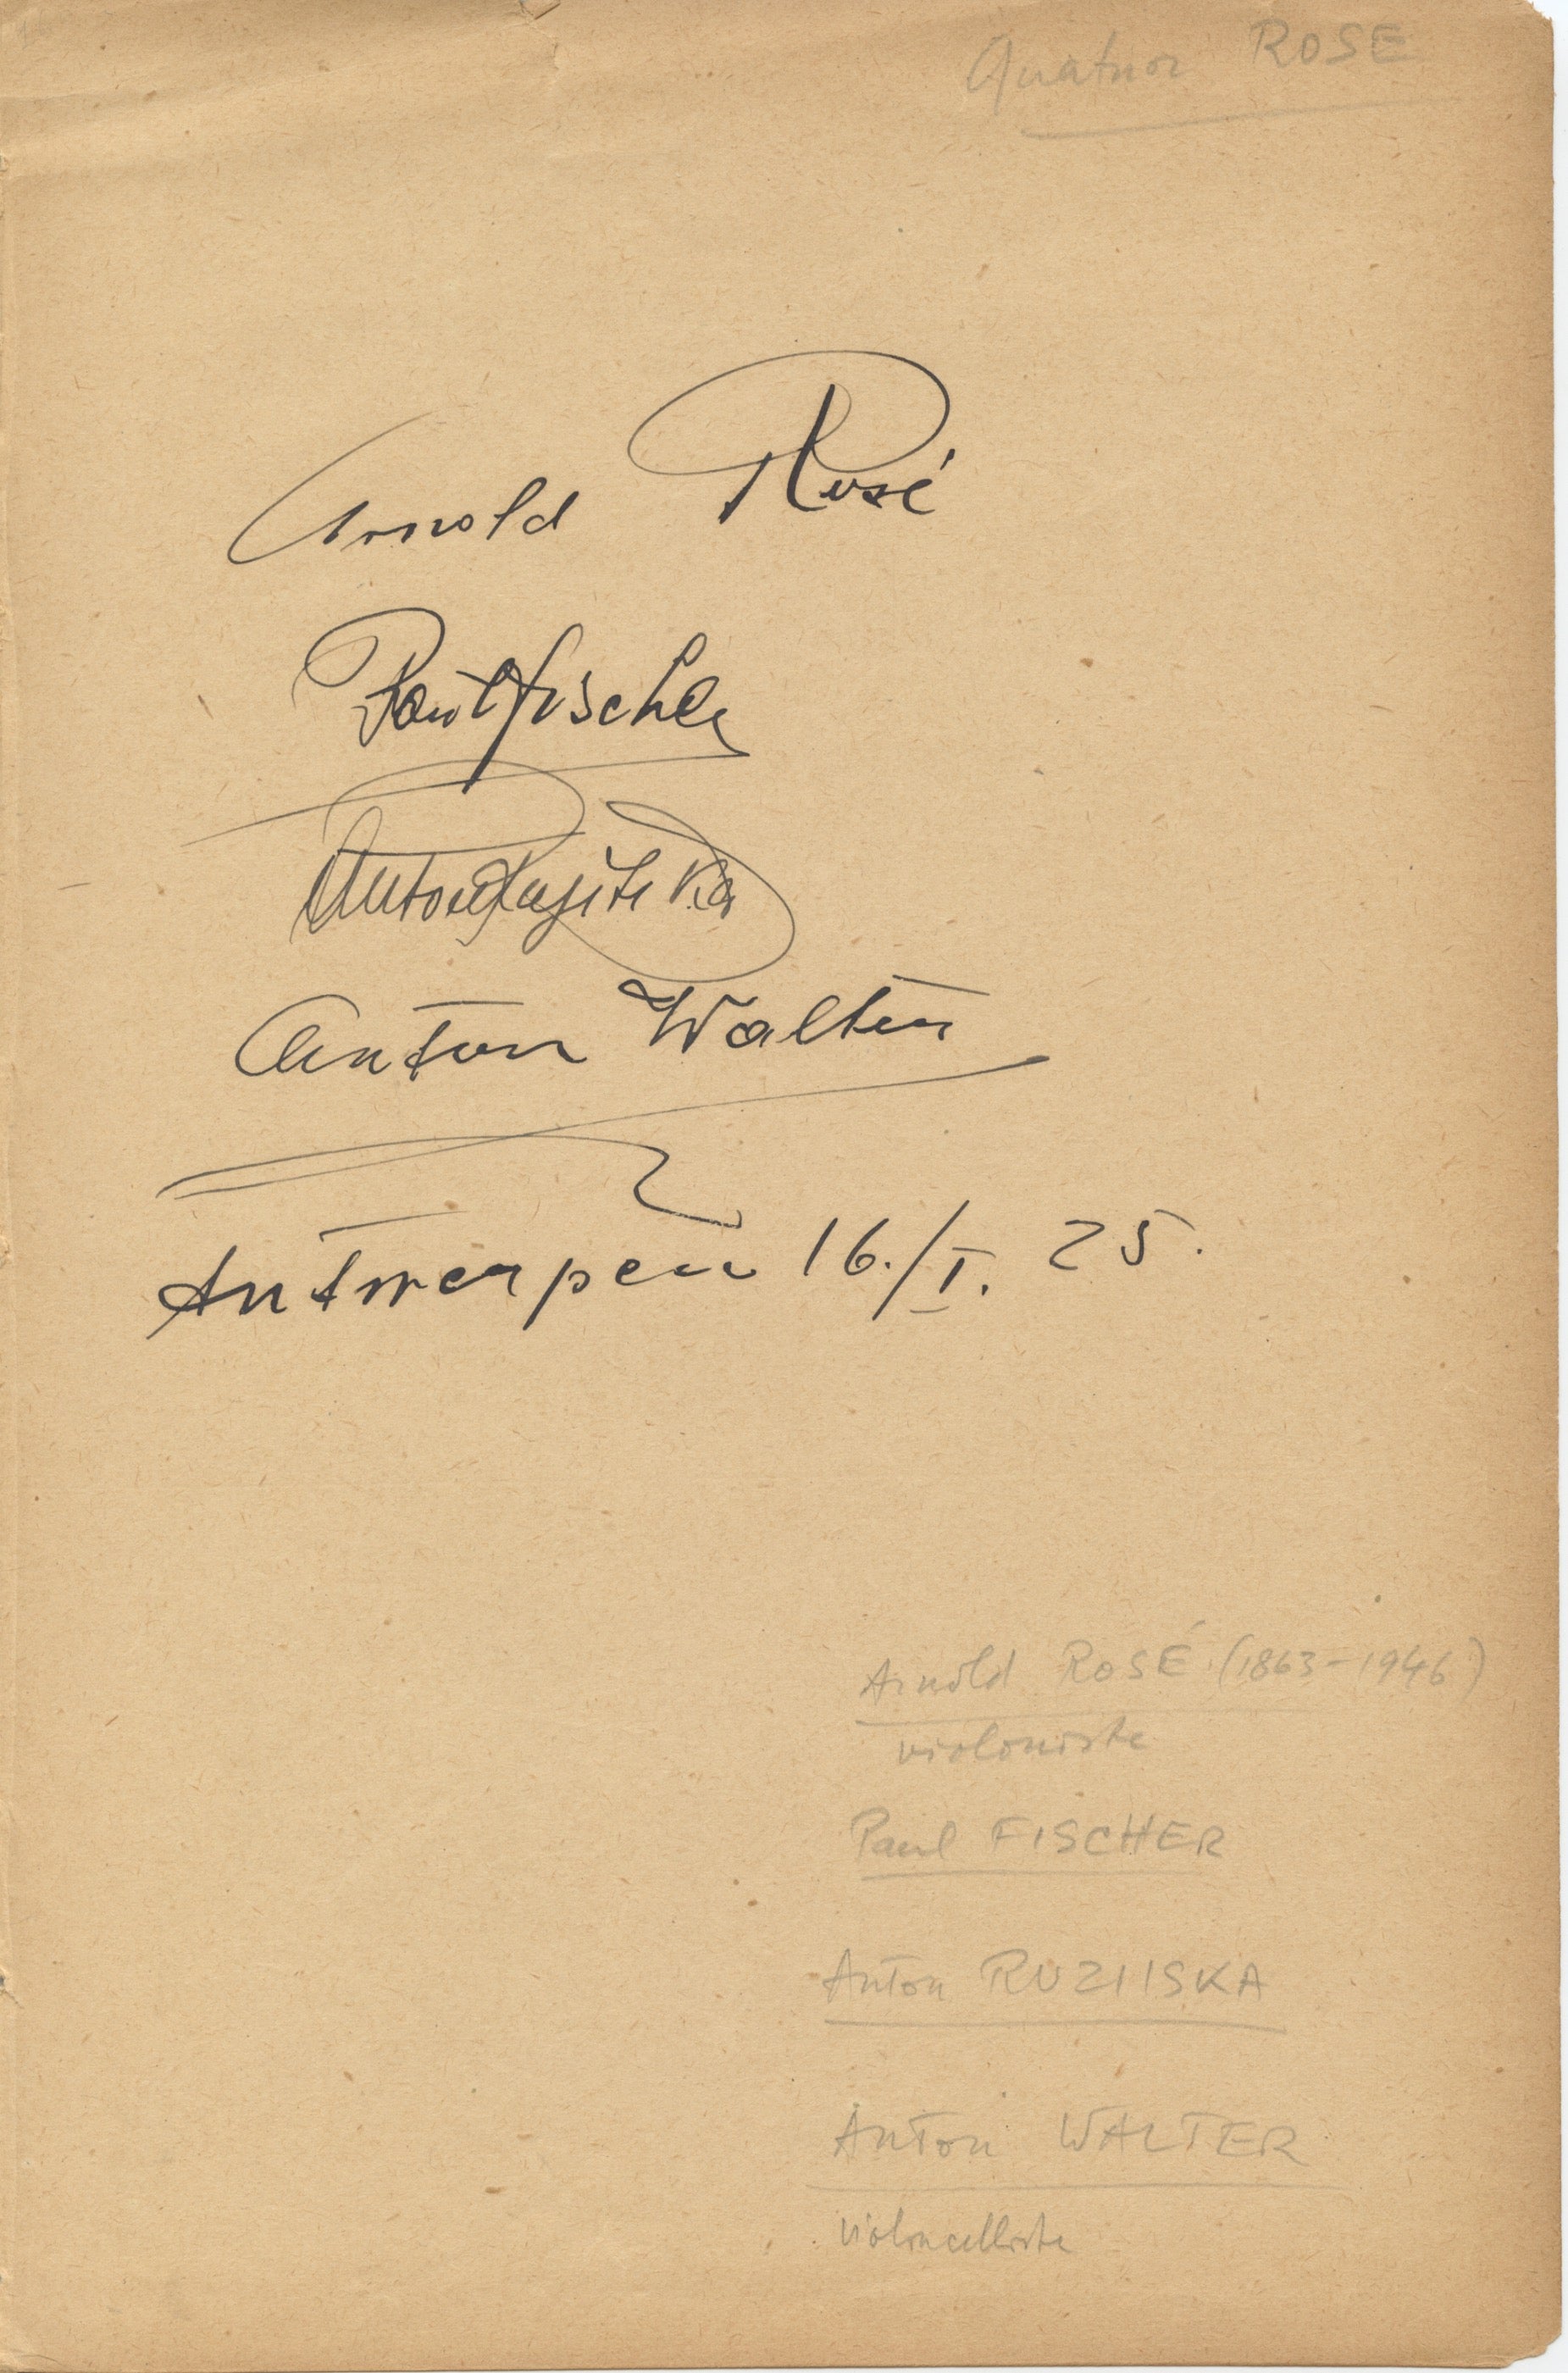 Quatuor ROSE
Arnold Rosé
Paul Fischer
Anton Ruzitska
Anton Walter
Antwerpen 16./I. 25.
Arnold ROSÉ (1863-1946)
violoniste
Paul FISCHER
Anton RUZIISKA
Anton WALTER
violoncelliste